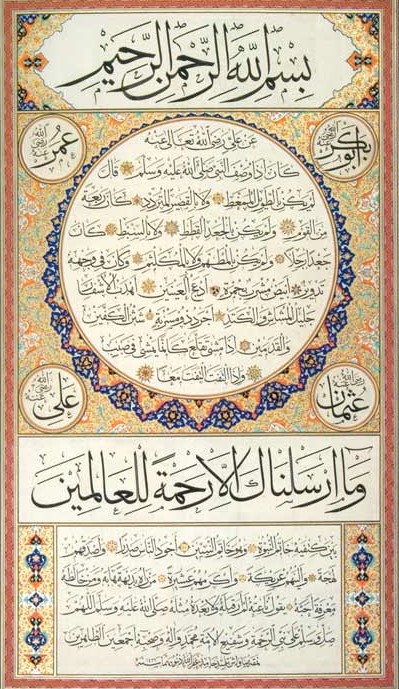 بسم الله الرحمن الرحيم
ابوبكر رضي الله عنه
عمر رضي الله عنه
عن علي رضي الله تعالى عنه
كان اذا وصف النبي صلى الله عليه وسلم قال
لم يكن بالطويل الممغط ولا بالقصير المتردد كان ربعة
من القوم ولم يكن بالجعد القطط ولا بالسبط كان
جعدا رجلا ولم يكن بالمطهم ولا بالمكلثم وكان في وجهه
تدوير ابيض مشرب بحمرة ادعج العينين اهدب الاشفار
جليل المشاش والكتد اجرد ذو مسربة شثن الكفين
والقدمين اذا مشى تقلع كانما يمشي في صبب
واذا التفت التفت معا
عثمان رضي الله عنه
علي رضي الله عنه
وما ارسلناك الا رحمة للعالمين
بين كتفيه خاتم النبوة وهو خاتم النبيين اجود الناس صدرا واصدقهم
لهجة والينهم عريكة واكرمهم عشيرة من راه بديهة هابه ومن خالطه
معرفة احبه يقول ناعته لم ار قبله ولا بعده مثله صلى الله عليه وسلم اللهم
صل وسلم على نبي الرحمة وشفيع الامة محمد واله وصحبه اجمعين الطاهرين